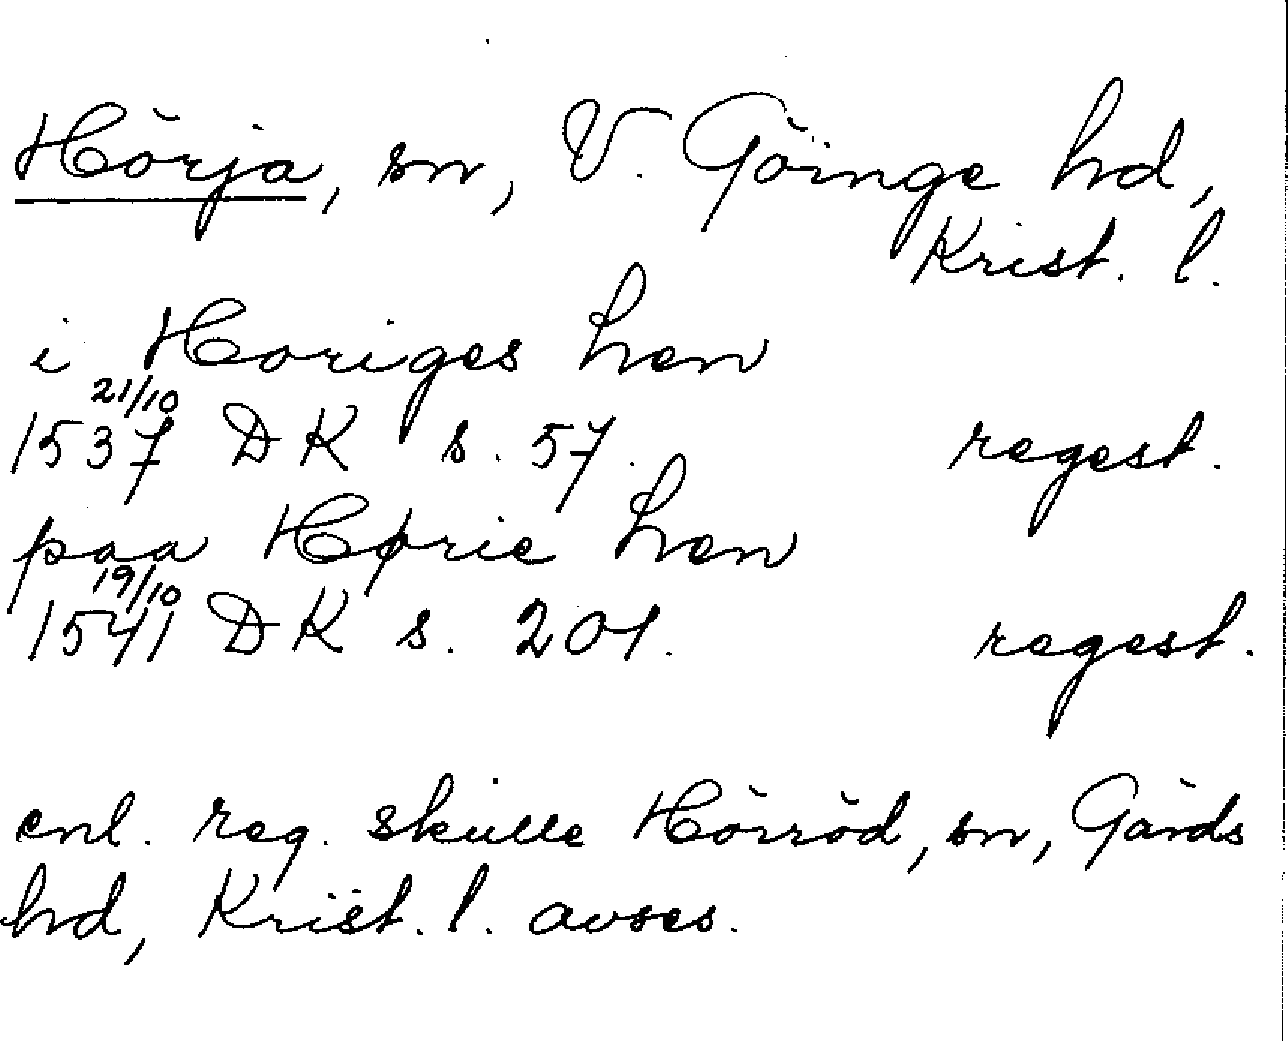 Hörja, sn, V. Göinge hd,
Krist. l.
i Horiges hren
21/10
1537 DK s. 57. regest.
paa Hørie hren
19/10
1541 DK s. 201. regest.
enl. reg. skulle Hörröd, sn, Gärds
hd, Krist. l. avses.